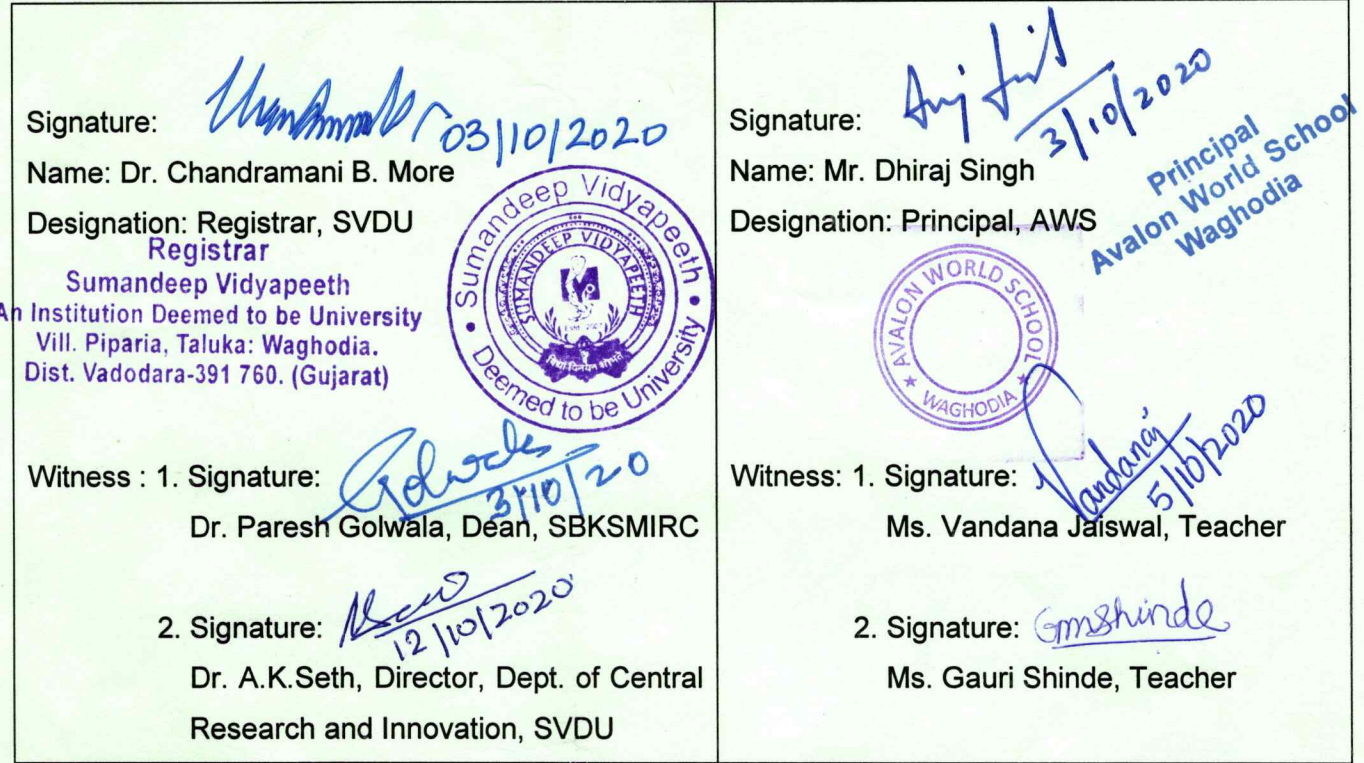 Signature:
03/10/2020
Name: Dr. Chandramani B. More
Designation: Registrar, SVDU
Registrar
Sumandeep Vidyapeeth
An Institution Deemed to be University
Vill. Piparia, Taluka: Waghodia.
Dist. Vadodara-391 760. (Gujarat)
Sumandeep Vidyapeeth
Deemed to be University
SUMANDEEP VIDYAPEETH
Witness : 1. Signature:
Golwala
3/10/20
Dr. Paresh Golwala, Dean, SBKSMIRC
2. Signature:
12/10/2020
Dr. A.K.Seth, Director, Dept. of Central
Research and Innovation, SVDU
Signature:
3/10/2020
Name: Mr. Dhiraj Singh
Designation: Principal, AWS
Principal
Avalon World School
Waghodia
AVALON WORLD SCHOOL
★ WAGHODIA ★
Witness: 1. Signature:
Vandanaj
5/10/2020
Ms. Vandana Jaiswal, Teacher
2. Signature: GmShinde
Ms. Gauri Shinde, Teacher